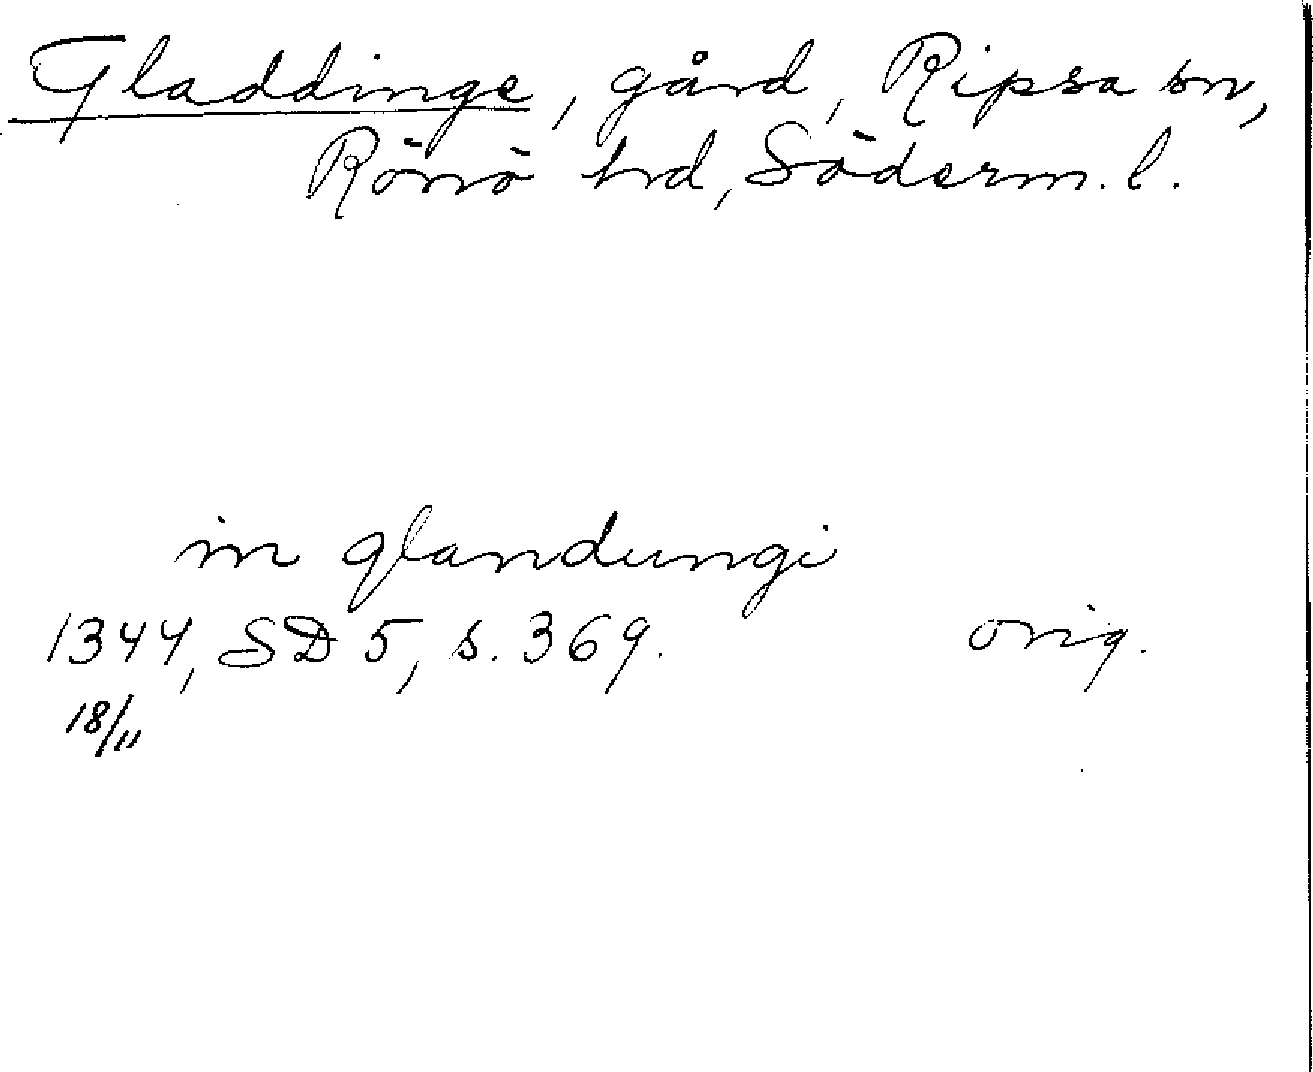 Gladdinge, gård, Ripsa sn,
Rönö hd, Söderm. l.
in glandungi
1344, SD 5, s. 369. orig.
18/11